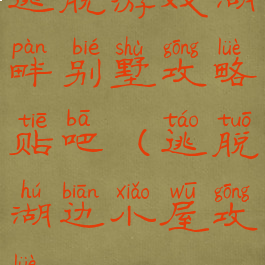 逃脱游戏湖
pàn bié shù gōng lüè
畔别墅攻略
tiē bā táo tuō
贴吧(逃脱
hú biān xiǎo wū gōng
湖边小屋攻
lüè